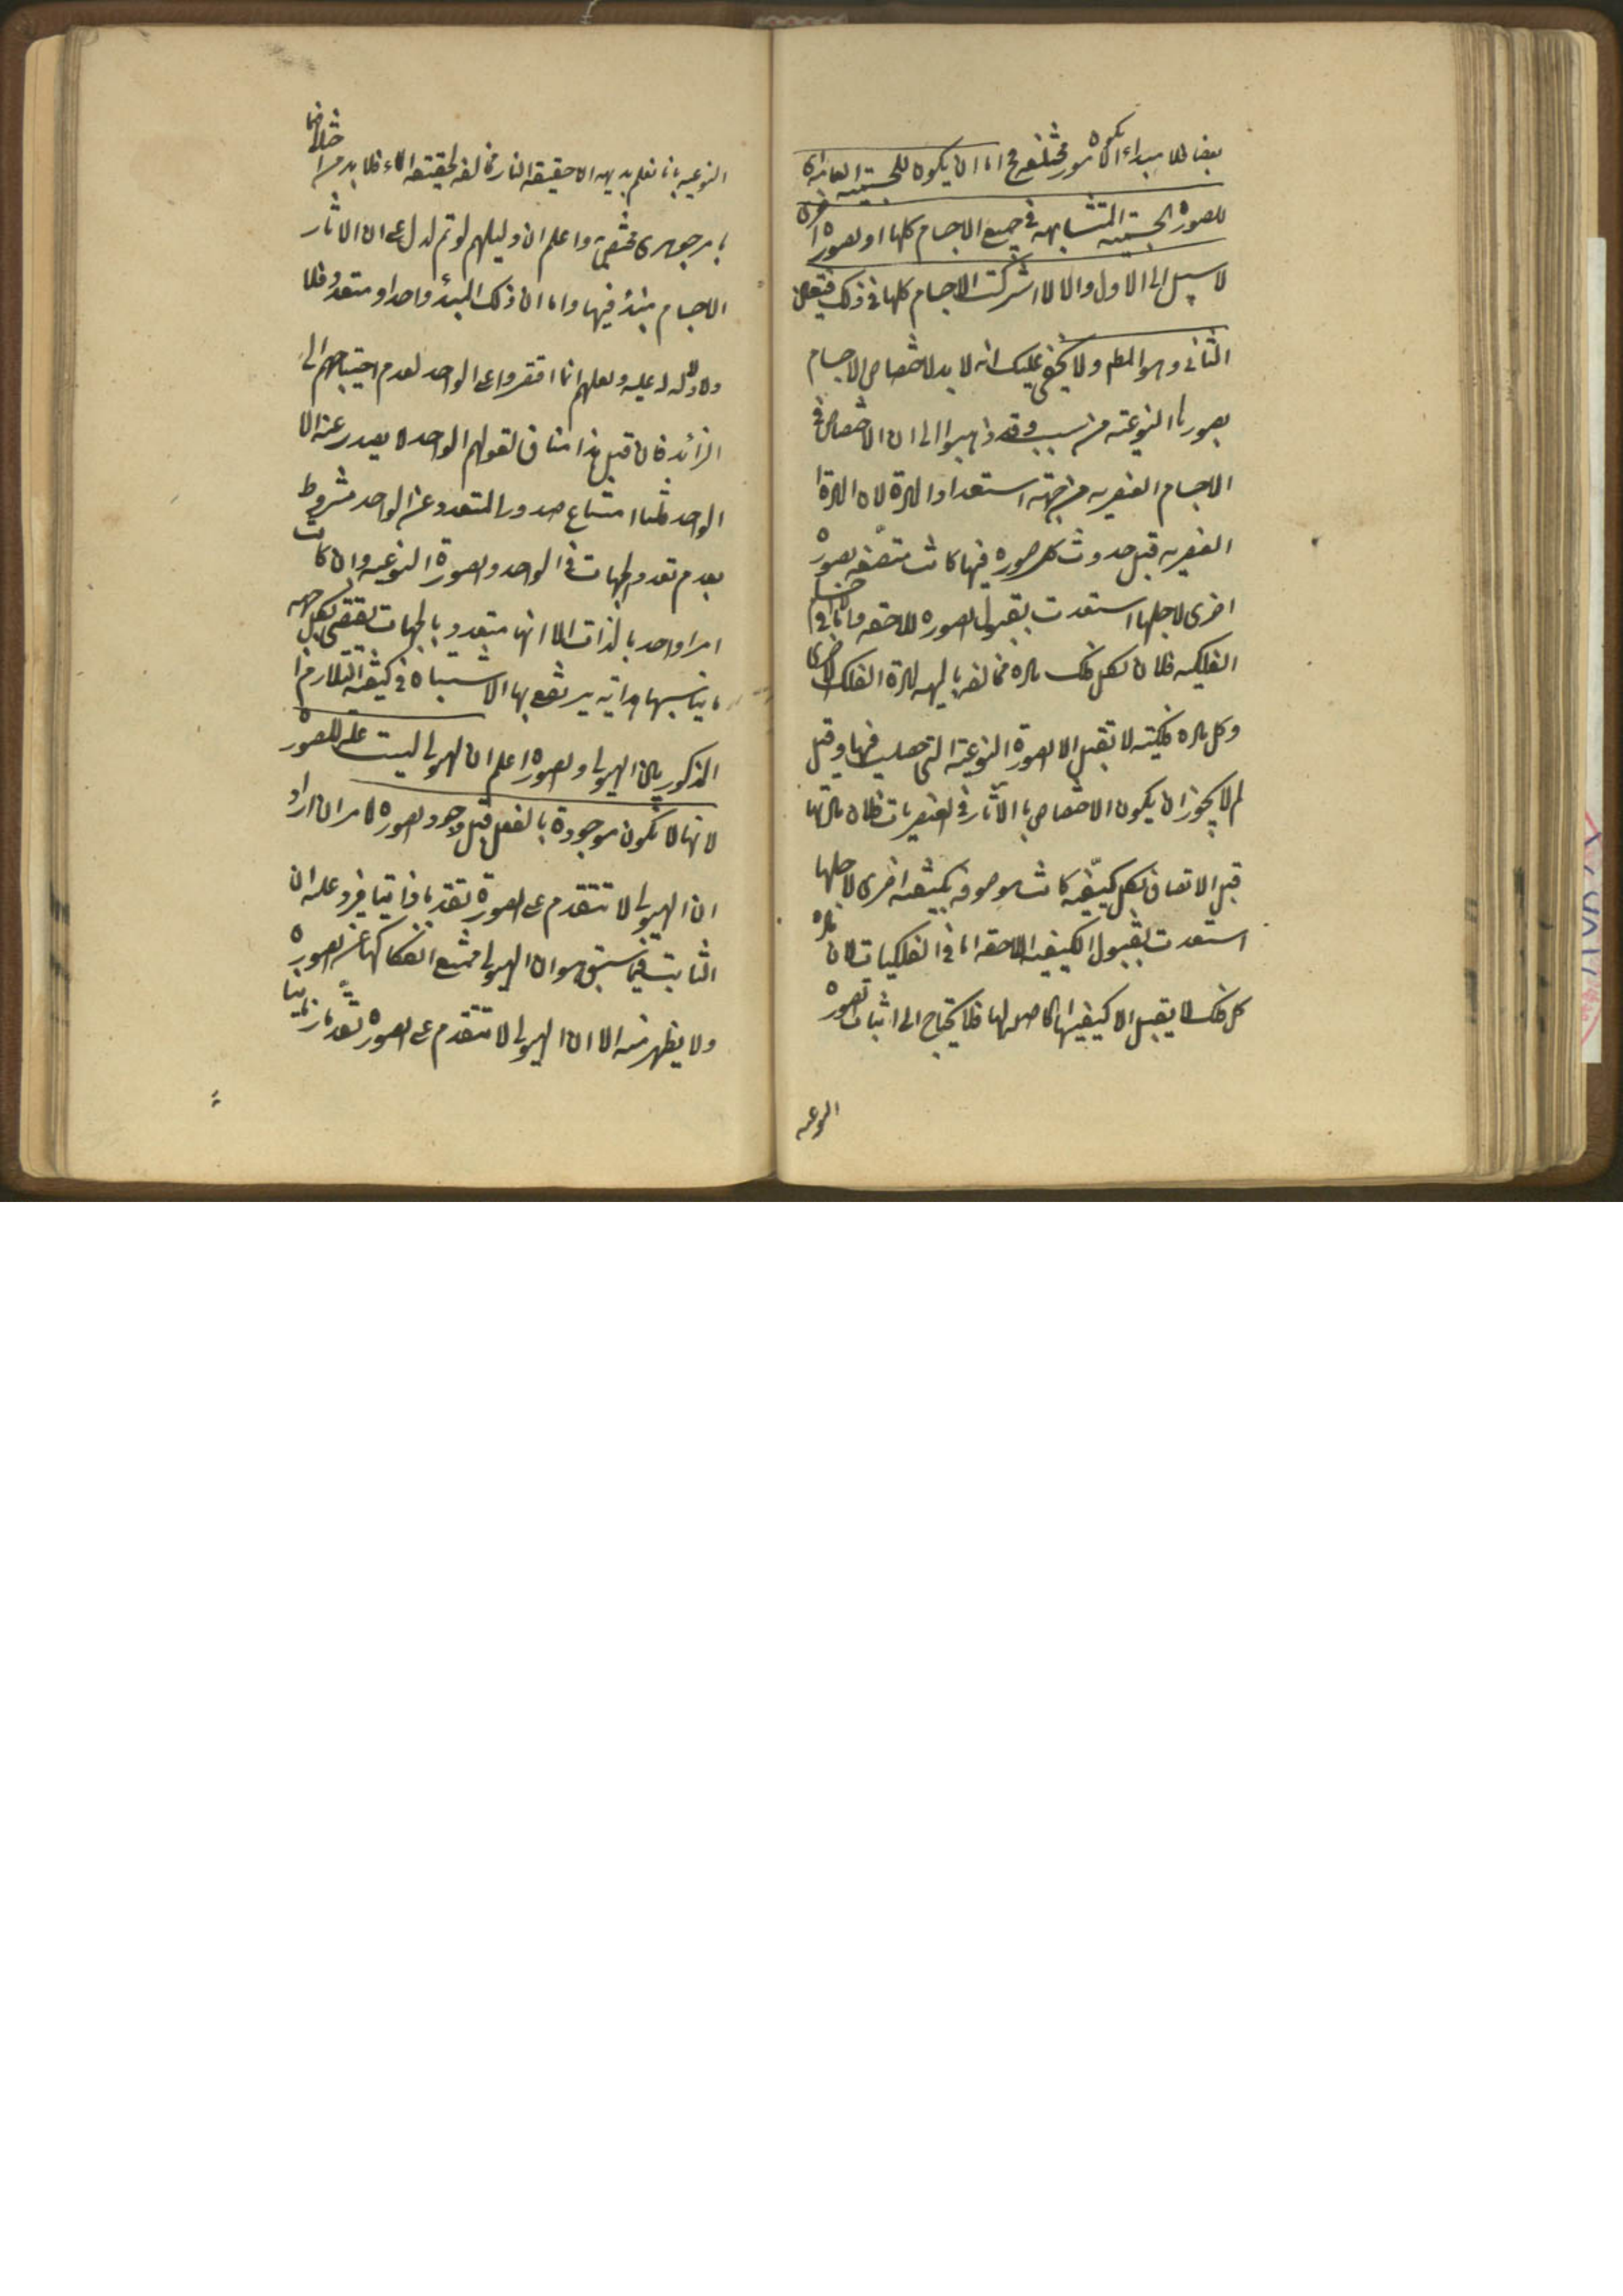 بعضا فلا يكون مبداء لامور مختلفة ح اما ان يكون للجسمية العامة اى
للصورة الجسمية المتشابهة فى جميع الاجسام كلها او لصورة اخرى
لا سبيل الى الاول والا لاشتركت الاجسام كلها فى ذلك فتعين
الثانى وهو المطم ولا يخفى عليك انه لابد لاختصاص الاجسام
بصورها النوعية من سبب وقد ذهبوا الى ان الاختصاص فى
الاجسام العنصرية من جهة استعداد المادة لان المادة
العنصرية قبل حدوث كل صورة فيها كانت متصفة بصورة
اخرى لاجلها استعدت بقبول الصورة اللاحقة واما فى الاجسام
الفلكية فلان لكل فلك مادة مخالفة بالمهية لمادة الفلك الاخرى
وكل مادة فلكية لا تقبل الا الصورة النوعية التى حصلت فيها وقيل
لم لا يجوز ان يكون الاختصاص بالآثار فى العنصريات فلان مادتها
قبل الاتصاف بكل كيفية كانت موصوفة بكيفية اخرى لاجلها
استعدت لقبول الكيفية اللاحقة اما فى الفلكيات فلان مادة
كل فلك لا يقبل الا كيفيتها الحاصلة لها فلا يحتاج الى اثبات الصورة
النوعية
النوعية بانا نعلم بديهة ان حقيقة النار مخالفة لحقيقة الماء فلا بد من اختلافهما
بامر جوهرى مختص واعلم ان دليلهم لو تم لدل على ان الاثار
الاجسام مبدأ فيها واما ان ذلك المبدأ واحد او متعدد فلا
ولا دلالة له عليه ولعلهم انما اقتصروا على الواحد لعدم احتياجهم الى
الزائد فان قيل هذا مناف لقولهم الواحد لا يصدر عنه الا
الواحد قلنا امتناع صدور المتعدد عن الواحد مشروط
بعدم تعدد الجهات فى الواحد والصورة النوعية وان كانت
امرا واحد بالذات الا انها متعدد بالجهات تقتضى بكل جهة
ما يناسبها هداية يرتفع بها الاشتباه فى كيفية التلازم
المذكور بين الهيولى والصورة اعلم ان الهيولى ليست علة للصورة
لانها لا تكون موجودة بالفعل قبل وجود الصورة لما مر ان اراد
ان الهيولى لا تتقدم على الصورة تقدما ذاتيا فيرد عليه ان
الثابت فيما سبق هو ان الهيولى يمتنع انفكاكها عن الصورة
ولا يظهر منه الا ان الهيولى لا تتقدم على الصورة تقدما زمانيا